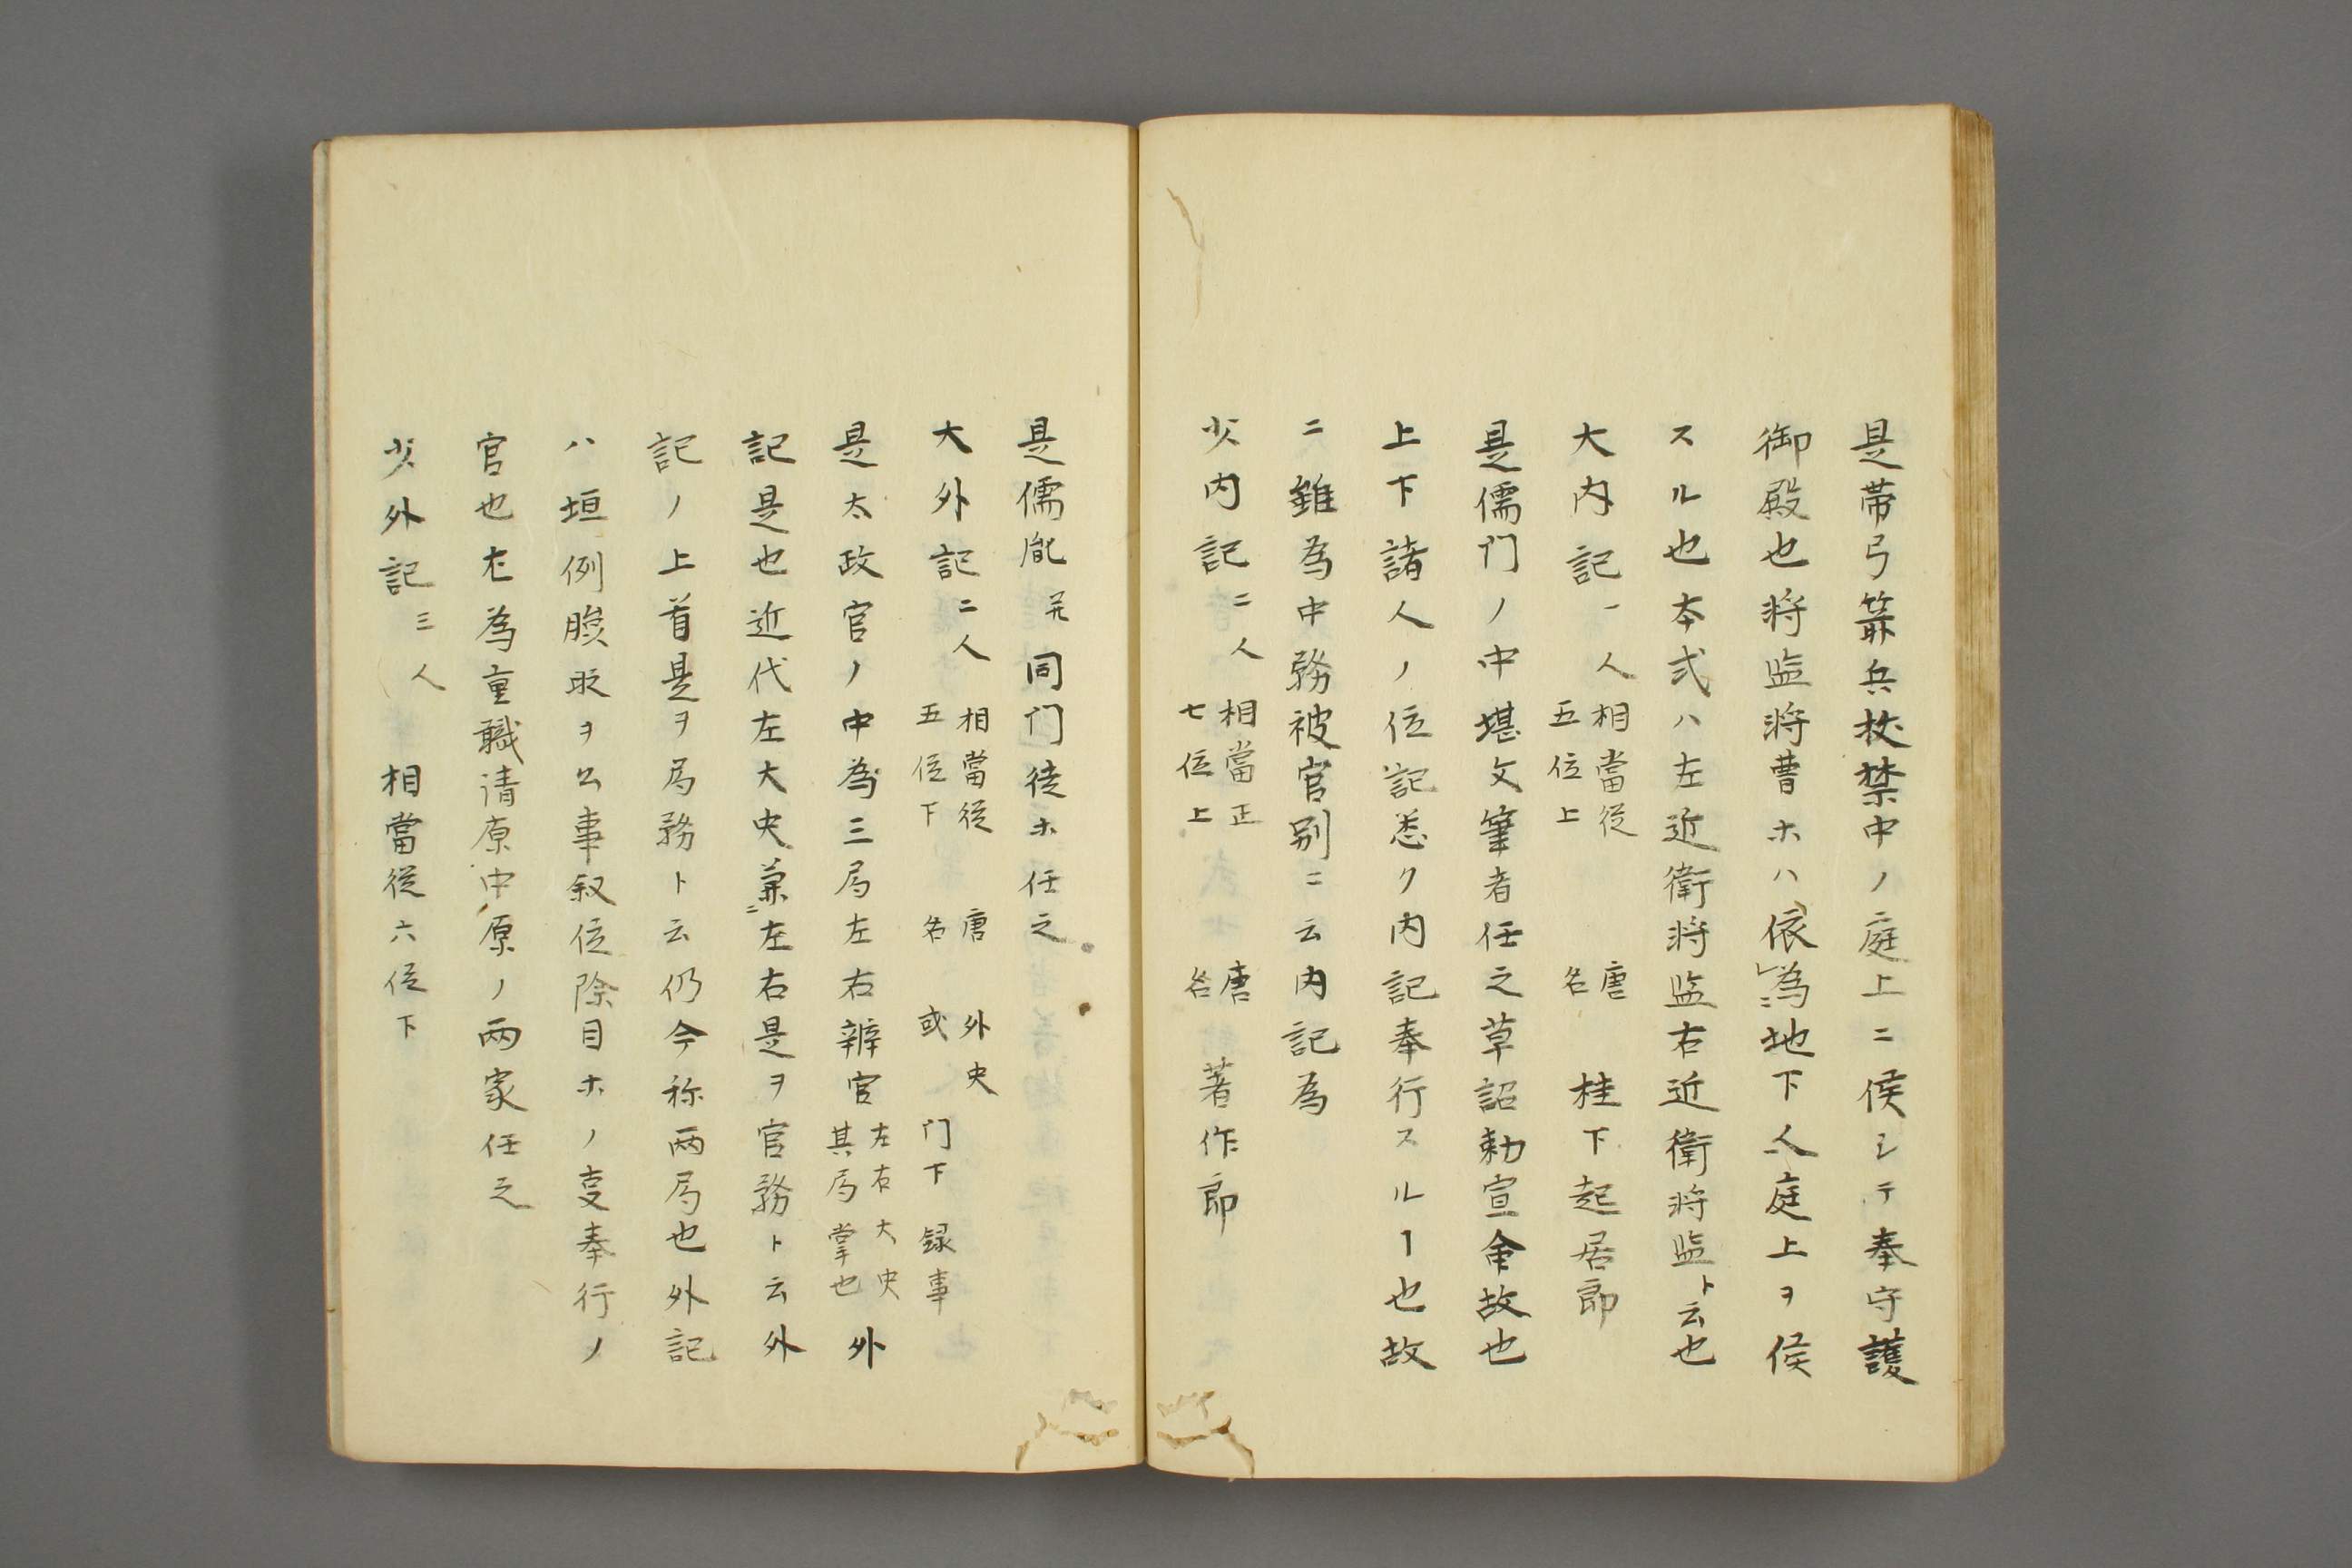 是帯弓箭兵杖禁中ノ庭上ニ侯シテ奉守護
御殿也将監将曹ホハ依為地下人庭上ヲ侯
スル也本式ハ左近衛将监右近衛将监ト云也
大内記一人 相當従五位上 唐名 桂下起居郎
是儒门ノ中堪文筆者任之草詔勅宣命故也
上下諸人ノ位記悉ク内記奉行スルヿ也故
ニ雖為中務被官别ニ云内記為
少内記二人 相當正七位上 唐名 著作郎
是儒胤并同门徒ホ任之
大外記二人 相當従五位下 唐名 外史 或门下録事
是太政官ノ中為三局左右辨官 左右大史其局掌也 外
記是也近代左大史兼左右是ヲ官務ト云外
記ノ上首是ヲ局務ト云仍今称两局也外記
ハ恒例臨時ヲ公事叙位除目ホノ支奉行ノ
官也尤為重職清原中原ノ两家任之
少外記三人 相當従六位下